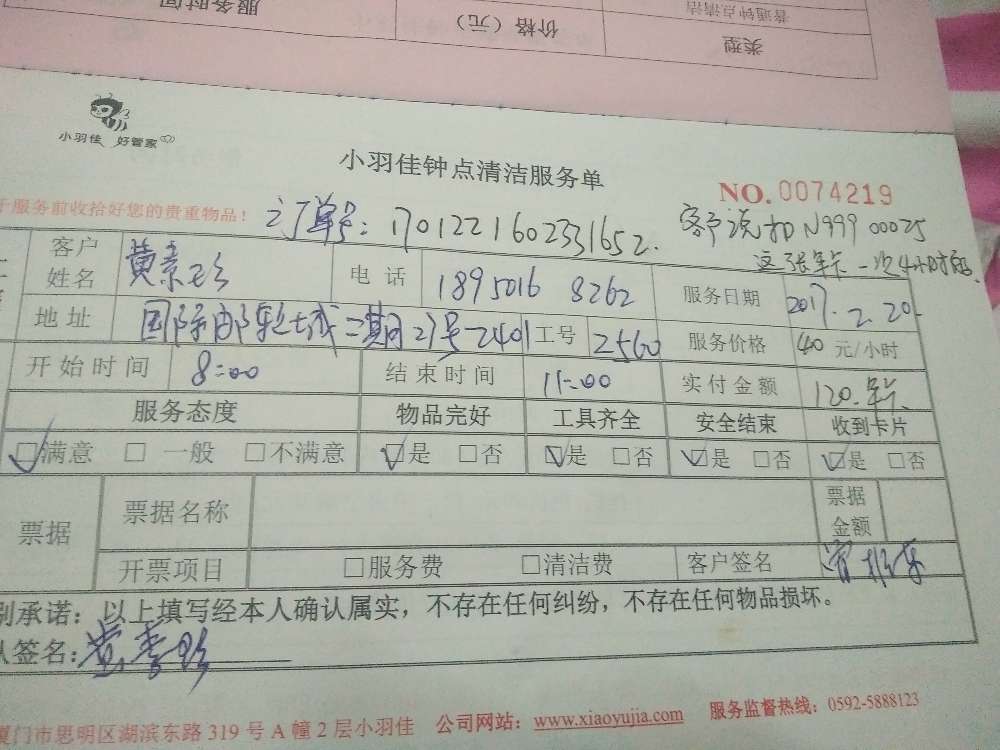 服务时间
价格（元）
普通钟点清洁
类型
小羽佳 好管家
小羽佳钟点清洁服务单
NO. 0074219
于服务前收拾好您的贵重物品！
订单号：1701221602331652.
客户说扣N999 00025
这张年卡一次4小时的
客户姓名 电话 18950168262 服务日期 2017.2.20.
地址 国际邮轮城二期21号2401 工号 2560 服务价格 40 元/小时
开始时间 8:00 结束时间 11:00 实付金额 120.年卡
服务态度 物品完好 工具齐全 安全结束 收到卡片
☑满意 □一般 □不满意 ☑是 □否 ☑是 □否 ☑是 □否 ☑是 □否
票据 票据名称 票据金额
开票项目 □服务费 □清洁费 客户签名
别承诺：以上填写经本人确认属实，不存在任何纠纷，不存在任何物品损坏。
人签名：
厦门市思明区湖滨东路319号A幢2层小羽佳 公司网站：www.xiaoyujia.com 服务监督热线：0592-5888123